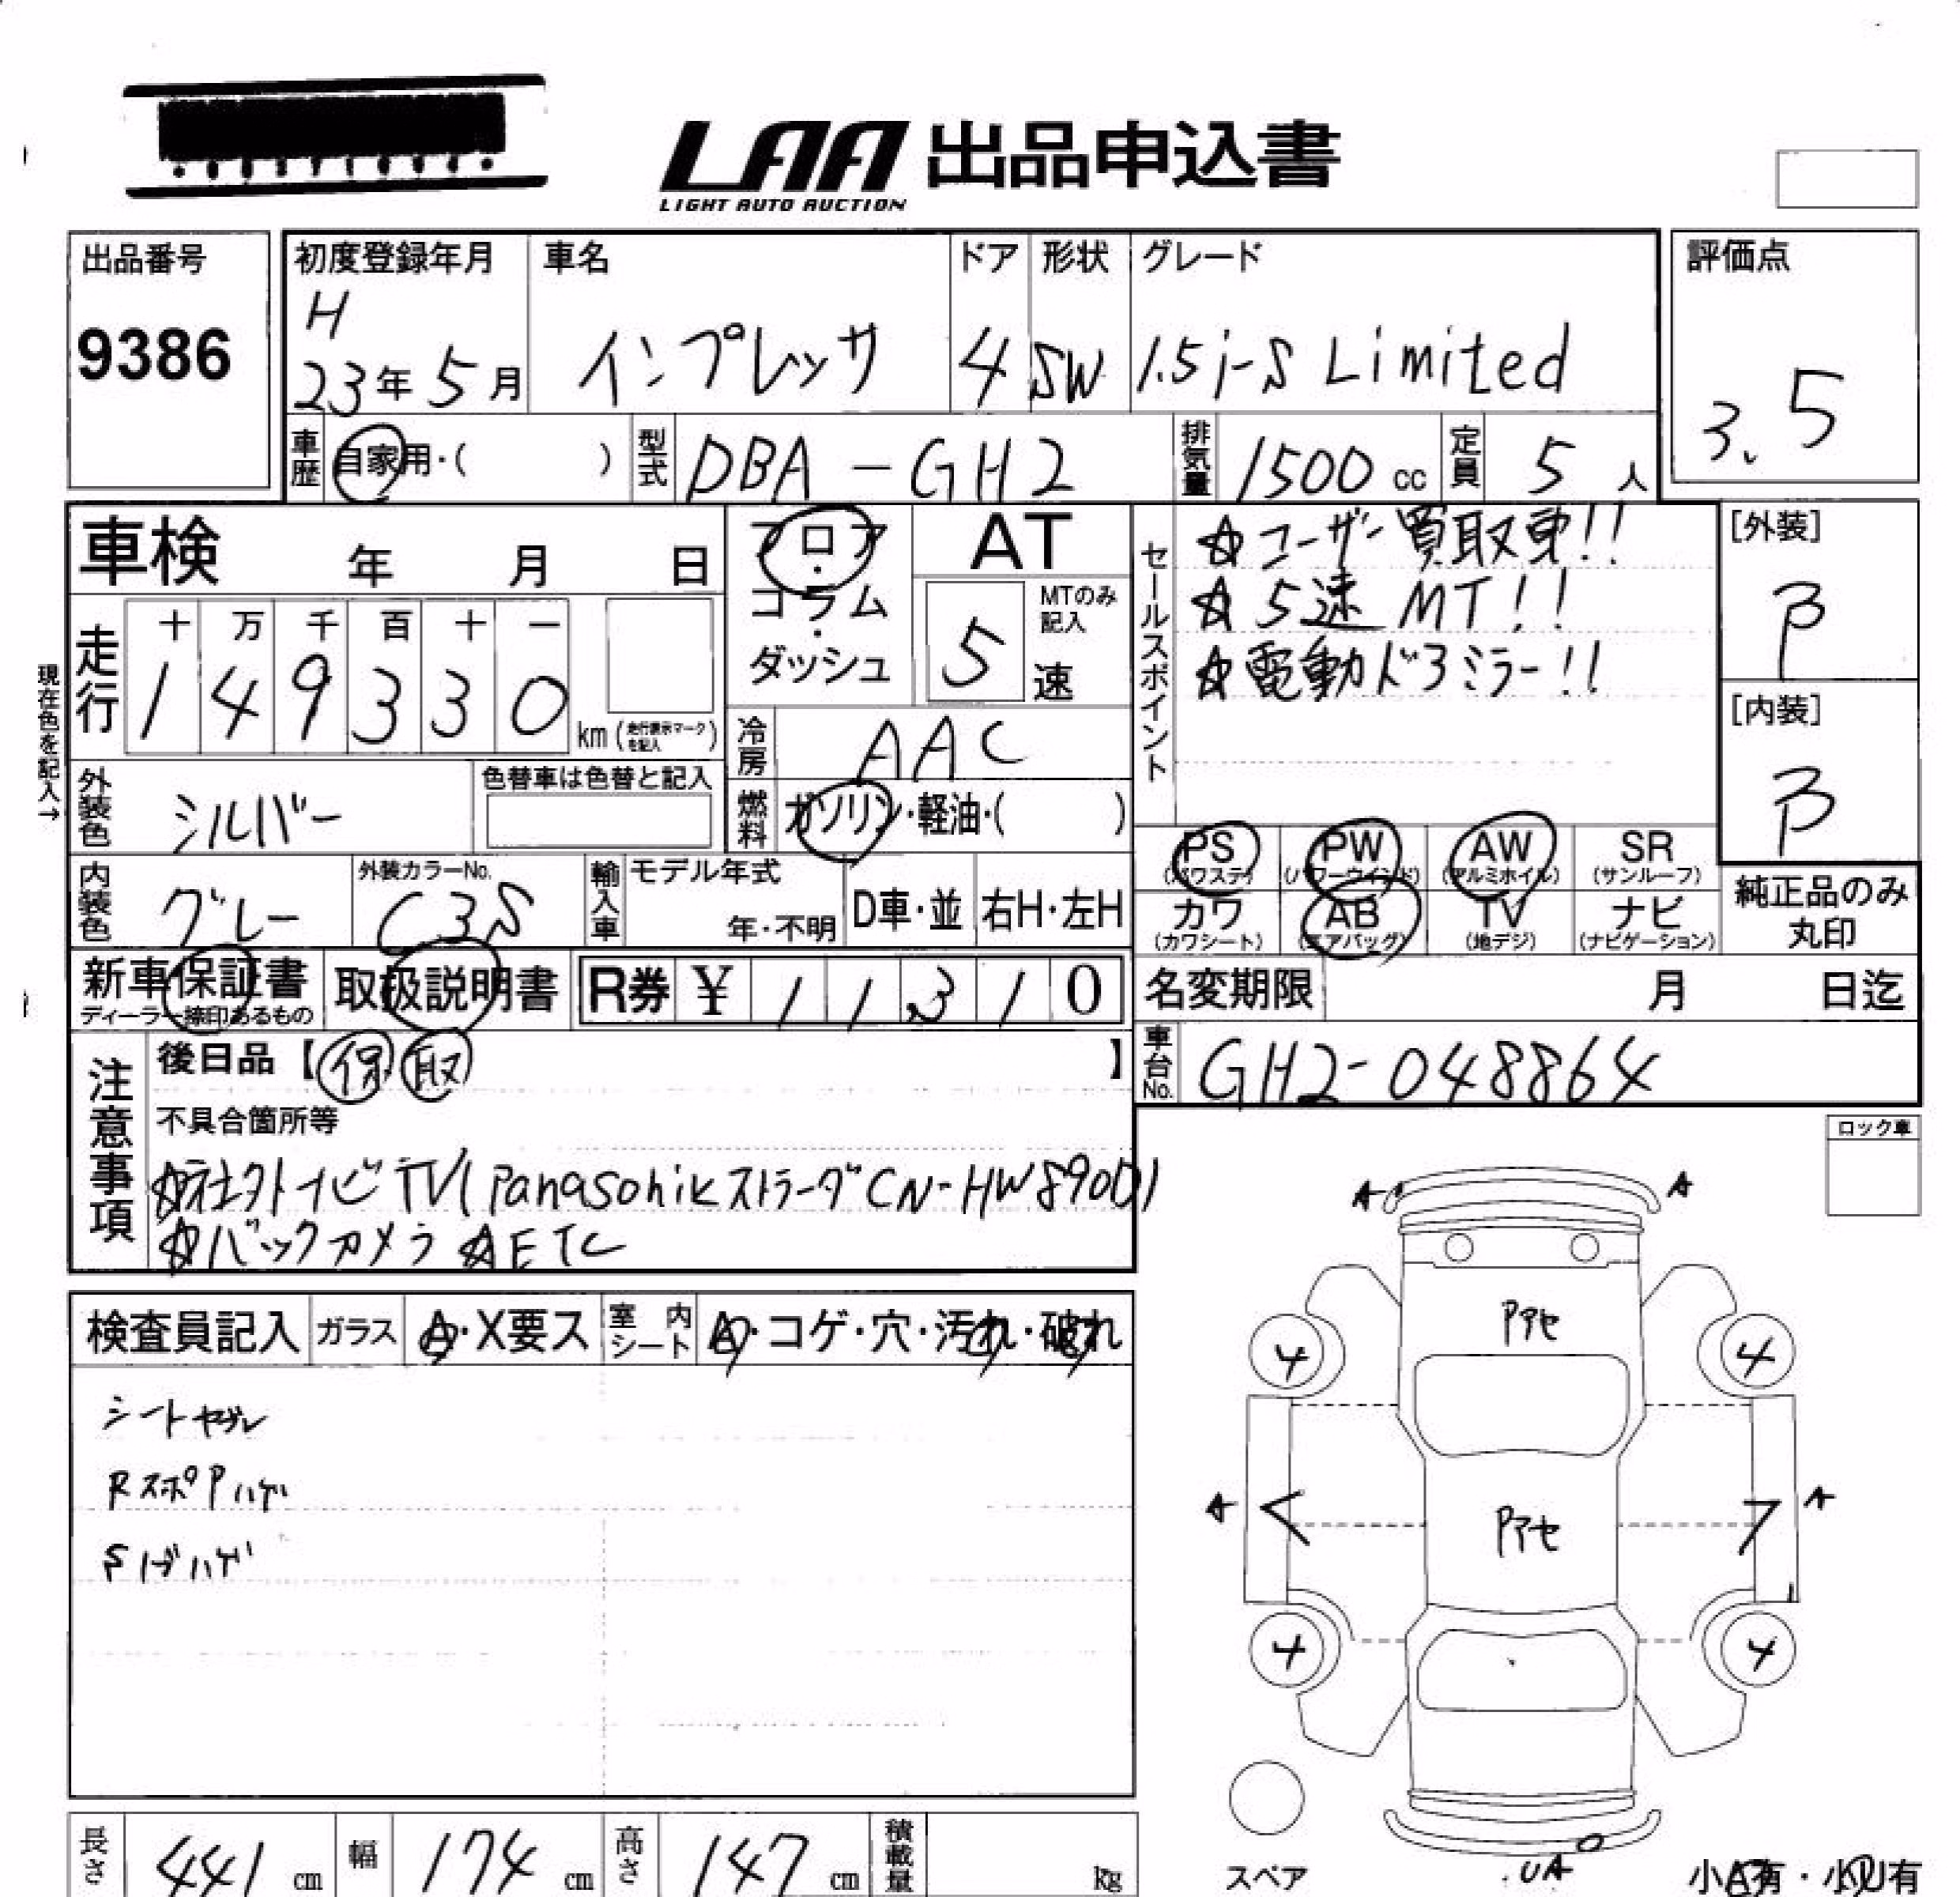 LAA 出品申込書
LIGHT AUTO AUCTION
出品番号
9386
初度登録年月
H
23年 5月
車名
インプレッサ
ドア
4
形状
SW
グレード
1.5i-S Limited
評価点
3.5
車歴 自家用・( )
型式 DBA-GH2
排気量 1500 cc
定員 5 人
車検 年 月 日
フロア・コラム・ダッシュ
AT
MTのみ記入
5 速
セールスポイント
☆ユーザー買取車!!
☆5速MT!!
☆電動ドアミラー!!
[外装]
B
[内装]
B
現在色を記入→
走行
十 万 千 百 十 一
1 4 9 3 3 0
km (走行表示マークを記入)
冷房 AAC
外装色 シルバー
色替車は色替と記入
燃料 ガソリン・軽油・( )
PS (パワステ)
PW (パワーウインド)
AW (アルミホイル)
SR (サンルーフ)
カワ (カワシート)
AB (エアバッグ)
TV (地デジ)
ナビ (ナビゲーション)
純正品のみ丸印
内装色 グレー
外装カラーNo. C3S
輸入車
モデル年式
年・不明
D車・並
右H・左H
新車保証書
ディーラー捺印あるもの
取扱説明書
R券 ¥ 1 1 3 1 0
名変期限 月 日迄
車台No. GH2-048864
注意事項
後日品【保 取 】
不具合箇所等
☆社外ナビTV(Panasonikストラーダ CN-HW890D)
☆バックカメラ ☆ETC
ロック車
検査員記入
ガラス A・X要ス
室内シート A・コゲ・穴・汚れ・破れ
シートヤブレ
RスポPハゲ
Sノブハゲ
A A
Pアセ
4 4
A A
Pアセ
4 4
スペア
UA
小A有・小U有
長さ 441 cm
幅 174 cm
高さ 147 cm
積載量 kg